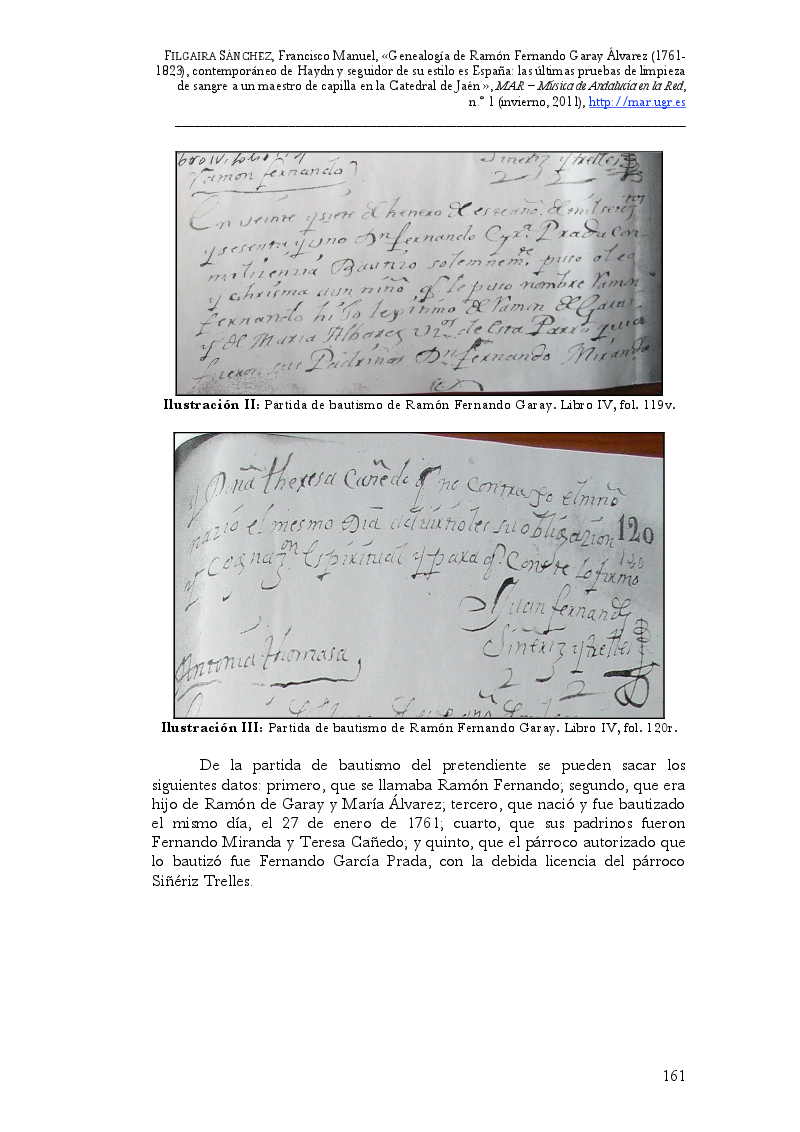 FILGAIRA SÁNCHEZ, Francisco Manuel, «Genealogía de Ramón Fernando Garay Álvarez (1761-
1823), contemporáneo de Haydn y seguidor de su estilo es España: las últimas pruebas de limpieza
de sangre a un maestro de capilla en la Catedral de Jaén», MAR – Música de Andalucía en la Red,
n.º 1 (invierno, 2011), http://mar.ugr.es
Ramon fernando
Siñeriz y trelles
En veinte y siete de henero de este año de mil setec.tos
y sesenta y uno Dn fernando Pradа con
mi lizenzia Bautizo solemnem.te puso oleo
y chrisma a un niño, q.e le puso nombre Ramon
fernando hijo lexitimo de Ramon de Garai
y de Maria Albarez de esta Parroquia
fueron sus Padrinos Dn fernando Miranda
Ilustración II: Partida de bautismo de Ramón Fernando Garay. Libro IV, fol. 119v.
y Doña theresa Cañedo no contraxo el niño
nazió el mesmo Dia advirtioles su obligazion 120
y Cognaz.on Espiritual y para q.e Conste lo firmo 120
Juan fernand
Siñeriz y trelles
Antonia thomasa
Ilustración III: Partida de bautismo de Ramón Fernando Garay. Libro IV, fol. 120r.
De la partida de bautismo del pretendiente se pueden sacar los
siguientes datos: primero, que se llamaba Ramón Fernando; segundo, que era
hijo de Ramón de Garay y María Álvarez; tercero, que nació y fue bautizado
el mismo día, el 27 de enero de 1761; cuarto, que sus padrinos fueron
Fernando Miranda y Teresa Cañedo; y quinto, que el párroco autorizado que
lo bautizó fue Fernando García Prada, con la debida licencia del párroco
Siñériz Trelles.
161